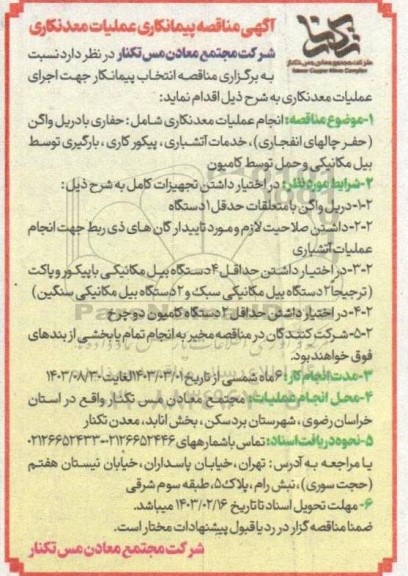 آگهی مناقصه پیمانکاری عملیات معدنکاری
تکنار
شرکت مجتمع معادن مس تکنار
Taknar Copper Mines Complex
شرکت مجتمع معادن مس تکنار در نظر دارد نسبت
به برگزاری مناقصه انتخاب پیمانکار جهت اجرای
عملیات معدنکاری به شرح ذیل اقدام نماید:
۱-موضوع مناقصه: انجام عملیات معدنکاری شامل: حفاری با دریل واگن
(حفر چالهای انفجاری)، خدمات آتشباری، پیکور کاری، بارگیری توسط
بیل مکانیکی وحمل توسط کامیون
۲-شرایط مورد نظر: در اختیار داشتن تجهیزات کامل به شرح ذیل:
۲-۱-دریل واگن با متعلقات حدقل ۱ دستگاه
۲-۲-داشتن صلاحیت لازم و مورد تایید ارگان های ذی ربط جهت انجام
عملیات آتشباری
۲-۳-در اختیار داشتن حداقل ۴ دستگاه بیل مکانیکی با پیکور و پاکت
(ترجیحا ۲ دستگاه بیل مکانیکی سبک و ۲ دستگاه بیل مکانیکی سنگین)
۲-۴-در اختیار داشتن حداقل ۲ دستگاه کامیون دو چرخ
۲-۵-شرکت کنندگان در مناقصه مخیر به انجام تمام یا بخشی از بندهای
فوق خواهند بود.
۳-مدت انجام کار: ۶ ماه شمسی از تاریخ ۱۴۰۳/۰۳/۰۱ لغایت ۱۴۰۳/۰۸/۳۰
۴-محل انجام عملیات: مجتمع معادن مس تکنار واقع در استان
خراسان رضوی، شهرستان بردسکن، بخش انابد، معدن تکنار
۵-نحوه دریافت اسناد: تماس با شمارههای ۰۲۱۲۶۶۵۲۴۴۶-۰۲۱۲۶۶۵۲۴۳۳
یا مراجعه به آدرس: تهران، خیابان پاسداران، خیابان نیستان هفتم
(حجت سوری)، نبش رام، پلاک ۵، طبقه سوم شرقی
۶- مهلت تحویل اسناد تا تاریخ ۱۴۰۳/۰۲/۱۶ میباشد.
ضمنا مناقصه گزار در رد یا قبول پیشنهادات مختار است.
شرکت مجتمع معادن مس تکنار